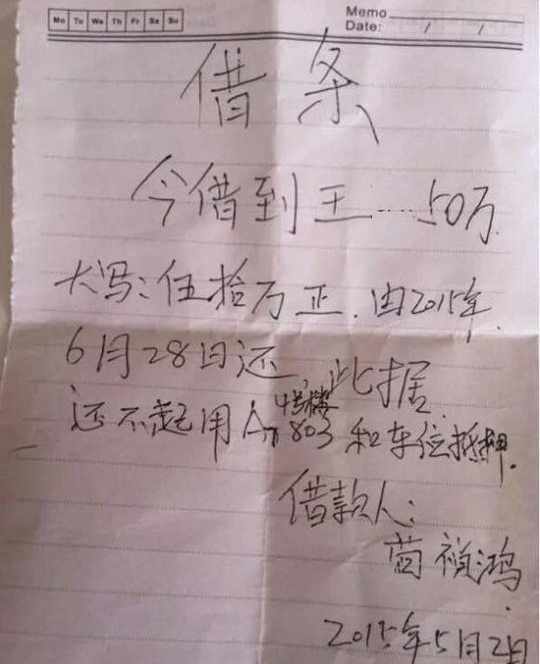 Mo Tu We Th Fr Sa Su
Memo
Date: / /
借条
今借到王....50万
大写:伍拾万正.由2015年
6月28日还,此据
4号楼
还不起用 803和车位抵押.
借款人:
禎鸿
2015年5月2日